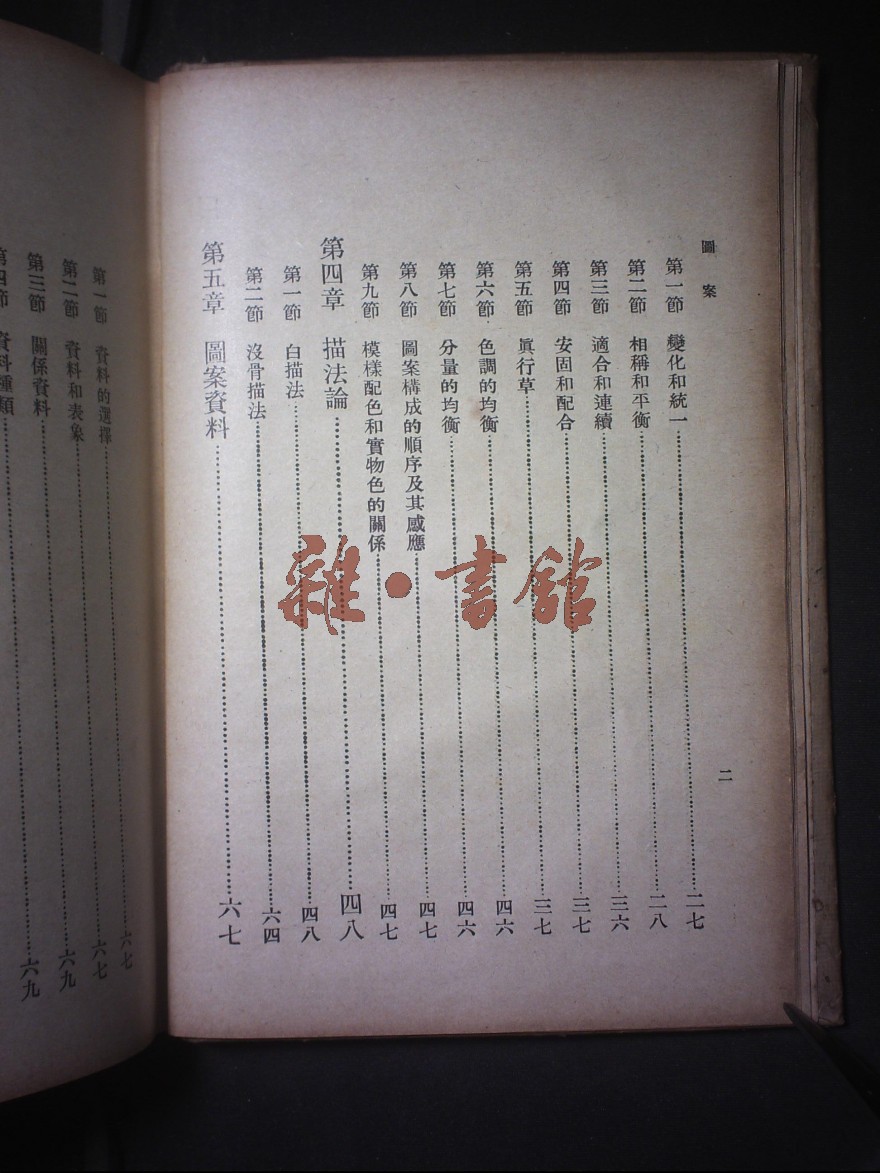 圖案
第一節 變化和統一……二七
第二節 相稱和平衡……二八
第三節 適合和連續……三六
第四節 安固和配合……三七
第五節 眞行草……三七
第六節 色調的均衡……四六
第七節 分量的均衡……四六
第八節 圖案構成的順序及其感應……四七
第九節 模樣配色和實物色的關係……四七
第四章 描法論……四八
第一節 白描法……四八
第二節 沒骨描法……六四
第五章 圖案資料……六七
二
第一節 資料的選擇……六七
第二節 資料和表象……六七
第三節 關係資料……六九
第四節 資料種類……六九
雜·書館